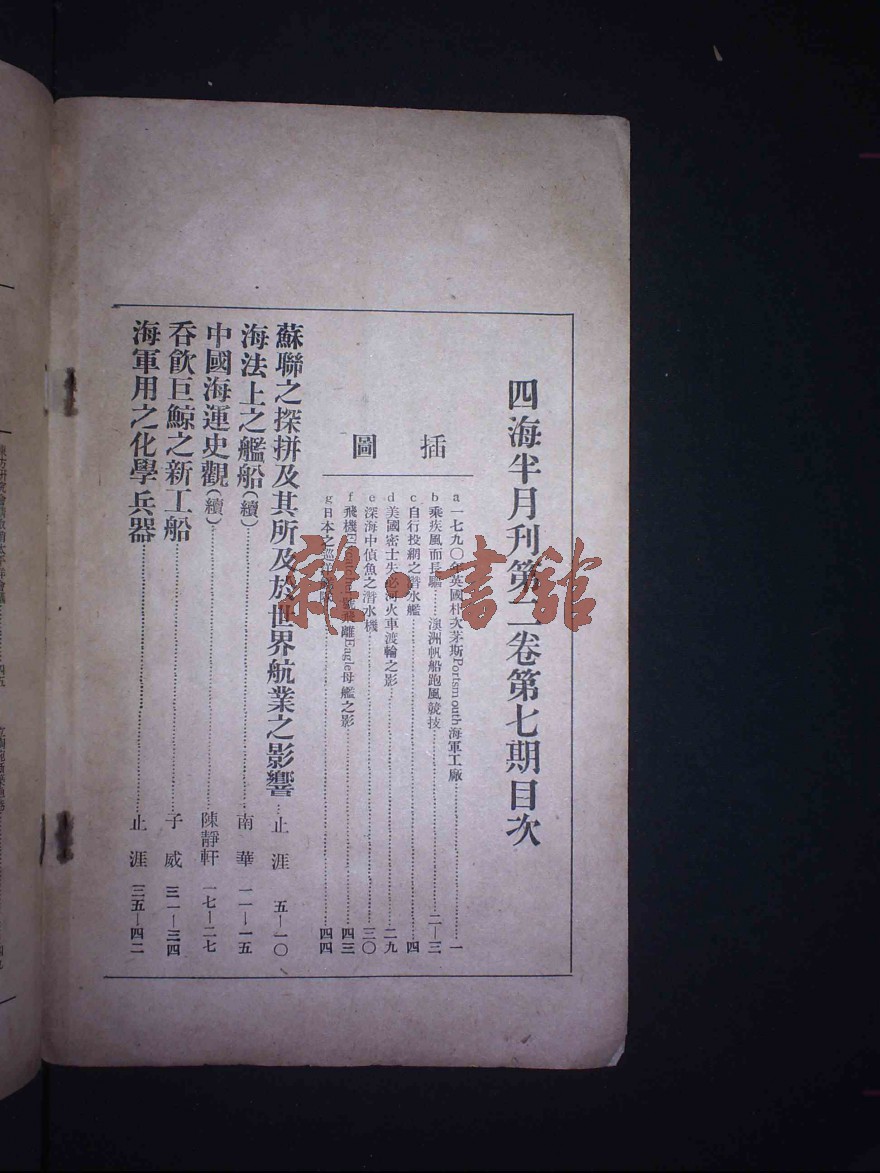 四海半月刊第二卷第七期目次
插圖
a 一七九〇年英國朴次茅斯Portsmouth海軍工廠 一
b 乘疾風而長驅……澳洲帆船跑風競技 二—三
c 自行投網之潛水艦 四
d 美國密士失必河火車渡輪之影 二九
e 深海中偵魚之潛水機 三〇
f 飛機 飛離Eagle母艦之影 四三
g 日本之巡洋 四四
蘇聯之探拼及其所及於世界航業之影響 止涯 五—一〇
海法上之艦船(續) 南華 一一—一五
中國海運史觀(續) 陳靜軒 一七—二七
吞飲巨鯨之新工船 子威 三一—三四
海軍用之化學兵器 止涯 三五—四二
雜·書館